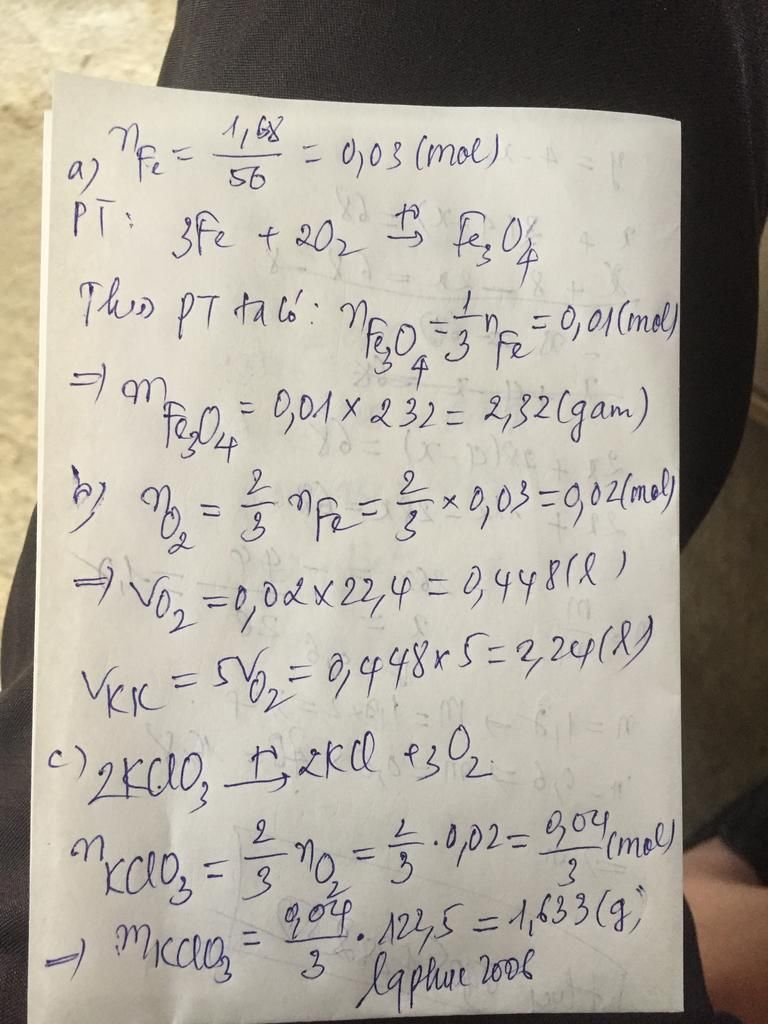 a) nFe = 1,68/56 = 0,03 (mol)
PT: 3Fe + 2O₂ →(t°) Fe₃O₄
Theo PT ta có: nFe₃O₄ = 1/3 nFe = 0,01 (mol)
=> mFe₃O₄ = 0,01 × 232 = 2,32 (gam)
b) nO₂ = 2/3 nFe = 2/3 × 0,03 = 0,02 (mol)
=> VO₂ = 0,02 × 22,4 = 0,448 (l)
VKK = 5VO₂ = 0,448 × 5 = 2,24 (l)
c) 2KClO₃ →(t°) 2KCl + 3O₂
nKClO₃ = 2/3 nO₂ = 2/3 . 0,02 = 0,04/3 (mol)
=> mKClO₃ = 0,04/3 . 122,5 = 1,633 (g)
lqphuc2006